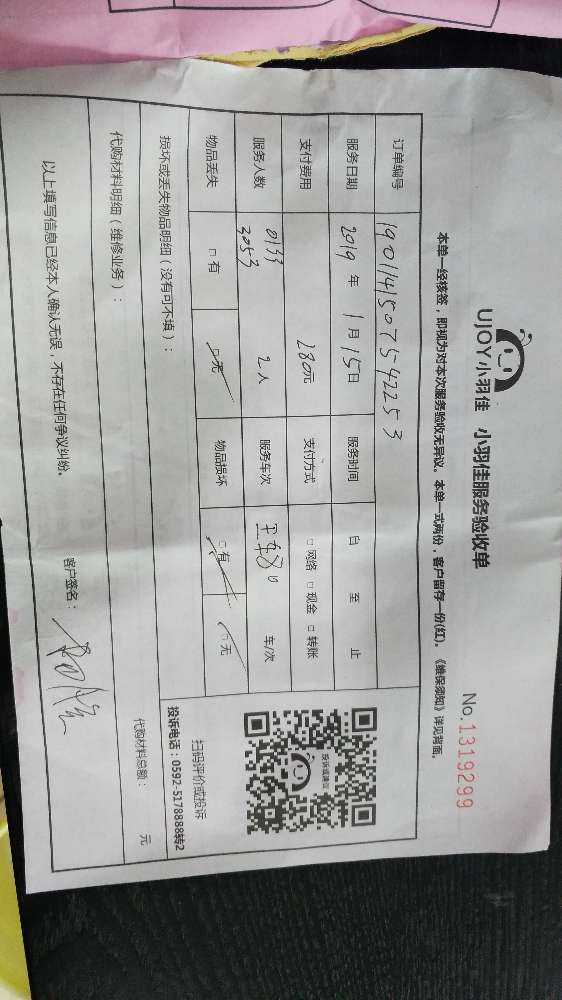 UJOY小羽佳 小羽佳服务验收单
No.1319299
本单一经核签，即视为对本次服务验收无异议。本单一式两份，客户留存一份(红)。《维保须知》详见背面。
订单编号 1901141507542253
服务日期 2019 年 1 月 15日 服务时间 自 至 止
支付费用 280元 支付方式 □ 网络 □ 现金 □ 转账
服务人数 3053 2人 服务车次 车/次
物品丢失 □ 有 □ 无 物品损坏 □ 有 □ 无
投诉或建议
扫码评价或投诉
投诉电话：0592-5178888转2
损坏或丢失物品明细（没有可不填）：
代购材料明细（维修业务）：
代购材料总额： 元
以上填写信息已经本人确认无误，不存在任何争议纠纷。
客户签名：